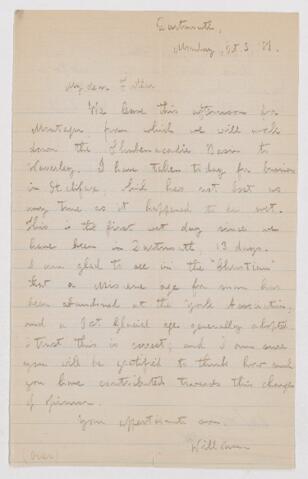 Dartmouth,
Monday, Oct 3, 81.
My dear Father
We leave this afternoon for
Montague, from which we will work
down the Shubenacadie Basin to
Waverley. I have taken today for business
in Halifax, which has not lost us
any time as it happened to be wet.
This is the first wet day since we
have been in Dartmouth, 13 days.
I am glad to see in the
that a miocene age for man has
been abandoned at the York Association,
and a Post Glacial age generally adopted
I trust this is correct, and I am sure
you will be gratified to think how much
you have contributed towards this change
of opinion.
Your affectionate son.
William
(over)